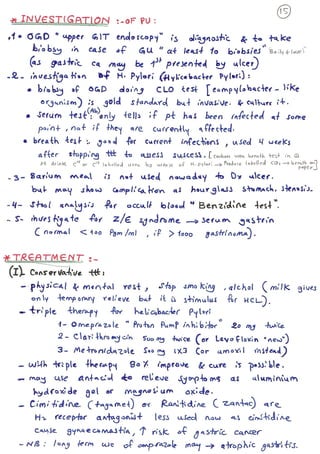 15
* INVESTIGATION :- OF PU :
.1• OGD "upper GIT endoscopy" is diagnostic & to take
biobsy in case of GU "at least 10 biobsies"
(as gastric ca may be 1st presented by ulcer)
-2- investigation of H. Pylori (Hylicobacter Pylori):
• biobsy of OGD doing CLO test [campylobacter - like
organism] is gold standard but invasive. & culture it.
• Serum test: (Ab) only tells if pt has been infected at some
point, not if they are currently affected.
• breath test : good for current infections, used 4 weeks
after stopping ttt to assess success. [carbon urea breath test in
pt drink C13 or C14 labelled urea by urease of H. pylori → Produce labelled CO2 → breath
-3- Barium meal is not used nowaday to Dx ulcer.
but may show complication as hourglass stomach. stenosis.
-4- Stool analysis for occult blood "Benzidine test".
-5- investigate for Z/E syndrome → serum gastrin
(normal <100 Pgm/ml , if > 1000 gastrinoma).
* TREATMENT :-
(I). Conservative ttt:
- physical & mental rest, stop smoking, alchol (milk gives
only temporary relieve but it is stimulus for HCL).
- triple therapy for helicobacter Pylori
1- Omeprazole "Proton Pump inhibitor" 20 mg twice
2- Clarithromycin 500 mg twice (or Levofloxin "new")
3- Metronidazole 500 mg 1X3 (or amoxil instead)
- With triple therapy 80% improve & cure is possible.
- may use antacid to relieve symptoms as aluminium
hydroxide gel or magnesium oxide.
- Cimitidine (tagamet) or Ranitidine (zantac) are
H2 receptor antagonist less used now as cimitidine
cause gynaecomastia, ↑ risk of gastric cancer
- NB : long term use of omprazole may → atrophic gastritis.